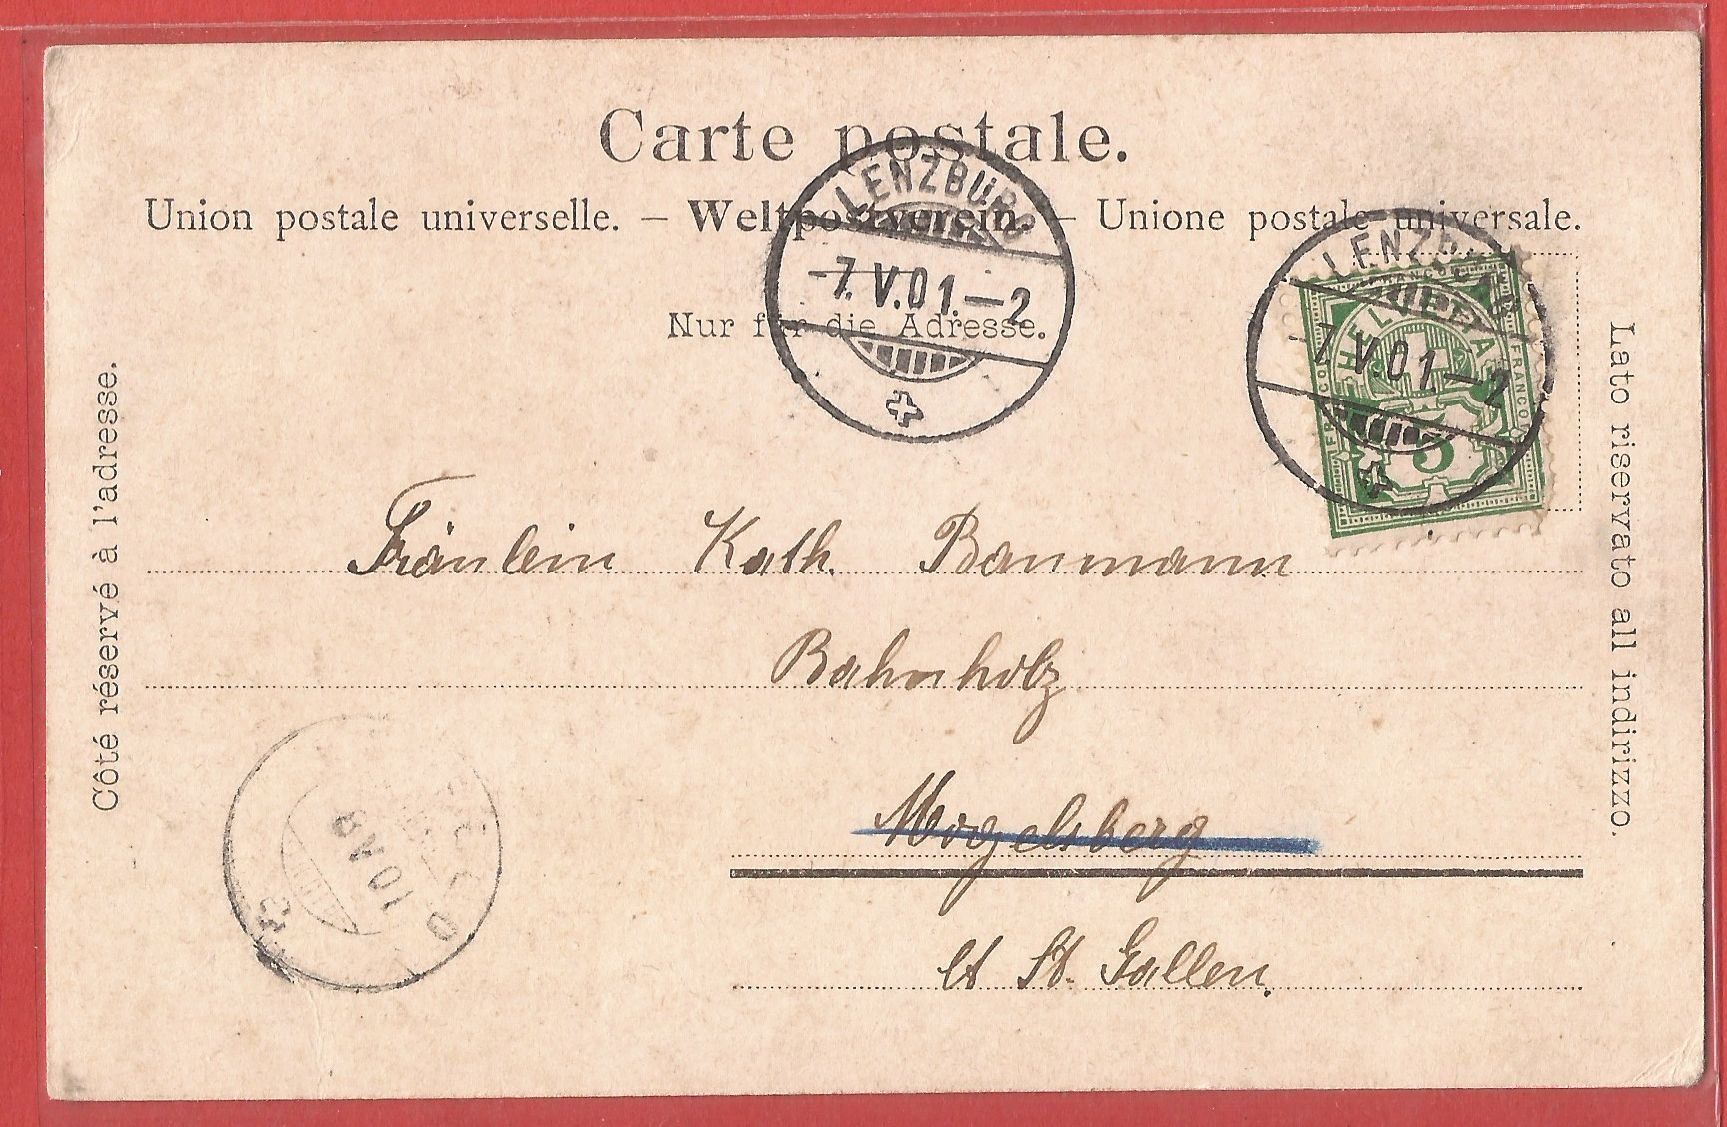 Carte postale.
Union postale universelle. – Weltpostverein. – Unione postale universale.
Nur für die Adresse.
Côté réservé à l'adresse.
Lato riservato all indirizzo.
LENZBURG
-7.V.01.-2
LENZBURG
7.V.01-2
HELVETIA
FRANCO
5
Fräulein Kath. Baumann
Bahnholz
Mogelsberg
Ct St. Gallen.